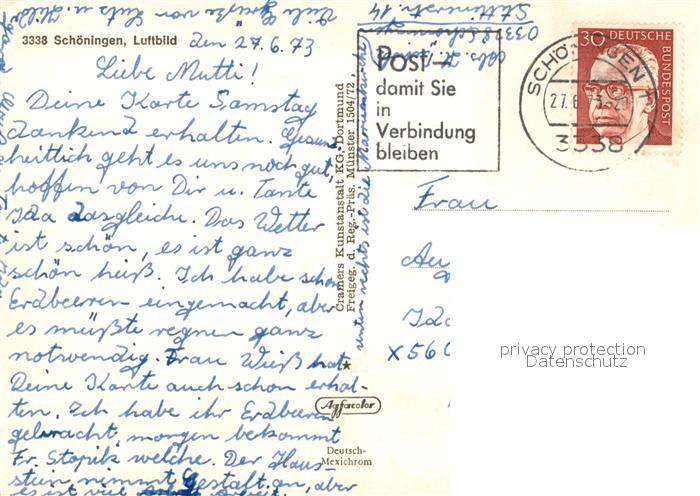 3338 Schöningen, Luftbild
den 27.6.73
Liebe Mutti!
Deine Karte Samstag
dankend erhalten. Gesund-
heitlich geht es uns noch gut,
hoffen von Dir u. Tante
Ida dasgleiche. Das Wetter
ist schön, es ist ganz
schön heiß. Ich habe schon
Erdbeeren eingemacht, aber
es müßte regnen ganz
notwendig. Frau Wieß hat
Deine Karte auch schon erhal-
ten. Ich habe ihr Erdbeeren
gebracht, morgen bekommt
Fr. Stopik welche. Der Haus-
stein nimmt Gestalt an, aber
es ist viel Arbeit.
Viele Grüße von
Cramers Kunstanstalt KG, Dortmund
Freigeg. d. Reg.-Präs. Münster 1504/72
unten rechts ist die
Agfacolor
Deutsch-
Mexichrom
Abs.
3338 Schöningen
Stettinerstr. 14
Post -
damit Sie
in
Verbindung
bleiben
SCHÖNINGEN 1
27.6.73
3338
30 DEUTSCHE
BUNDESPOST
Frau
Ida
X 560
privacy protection
Datenschutz